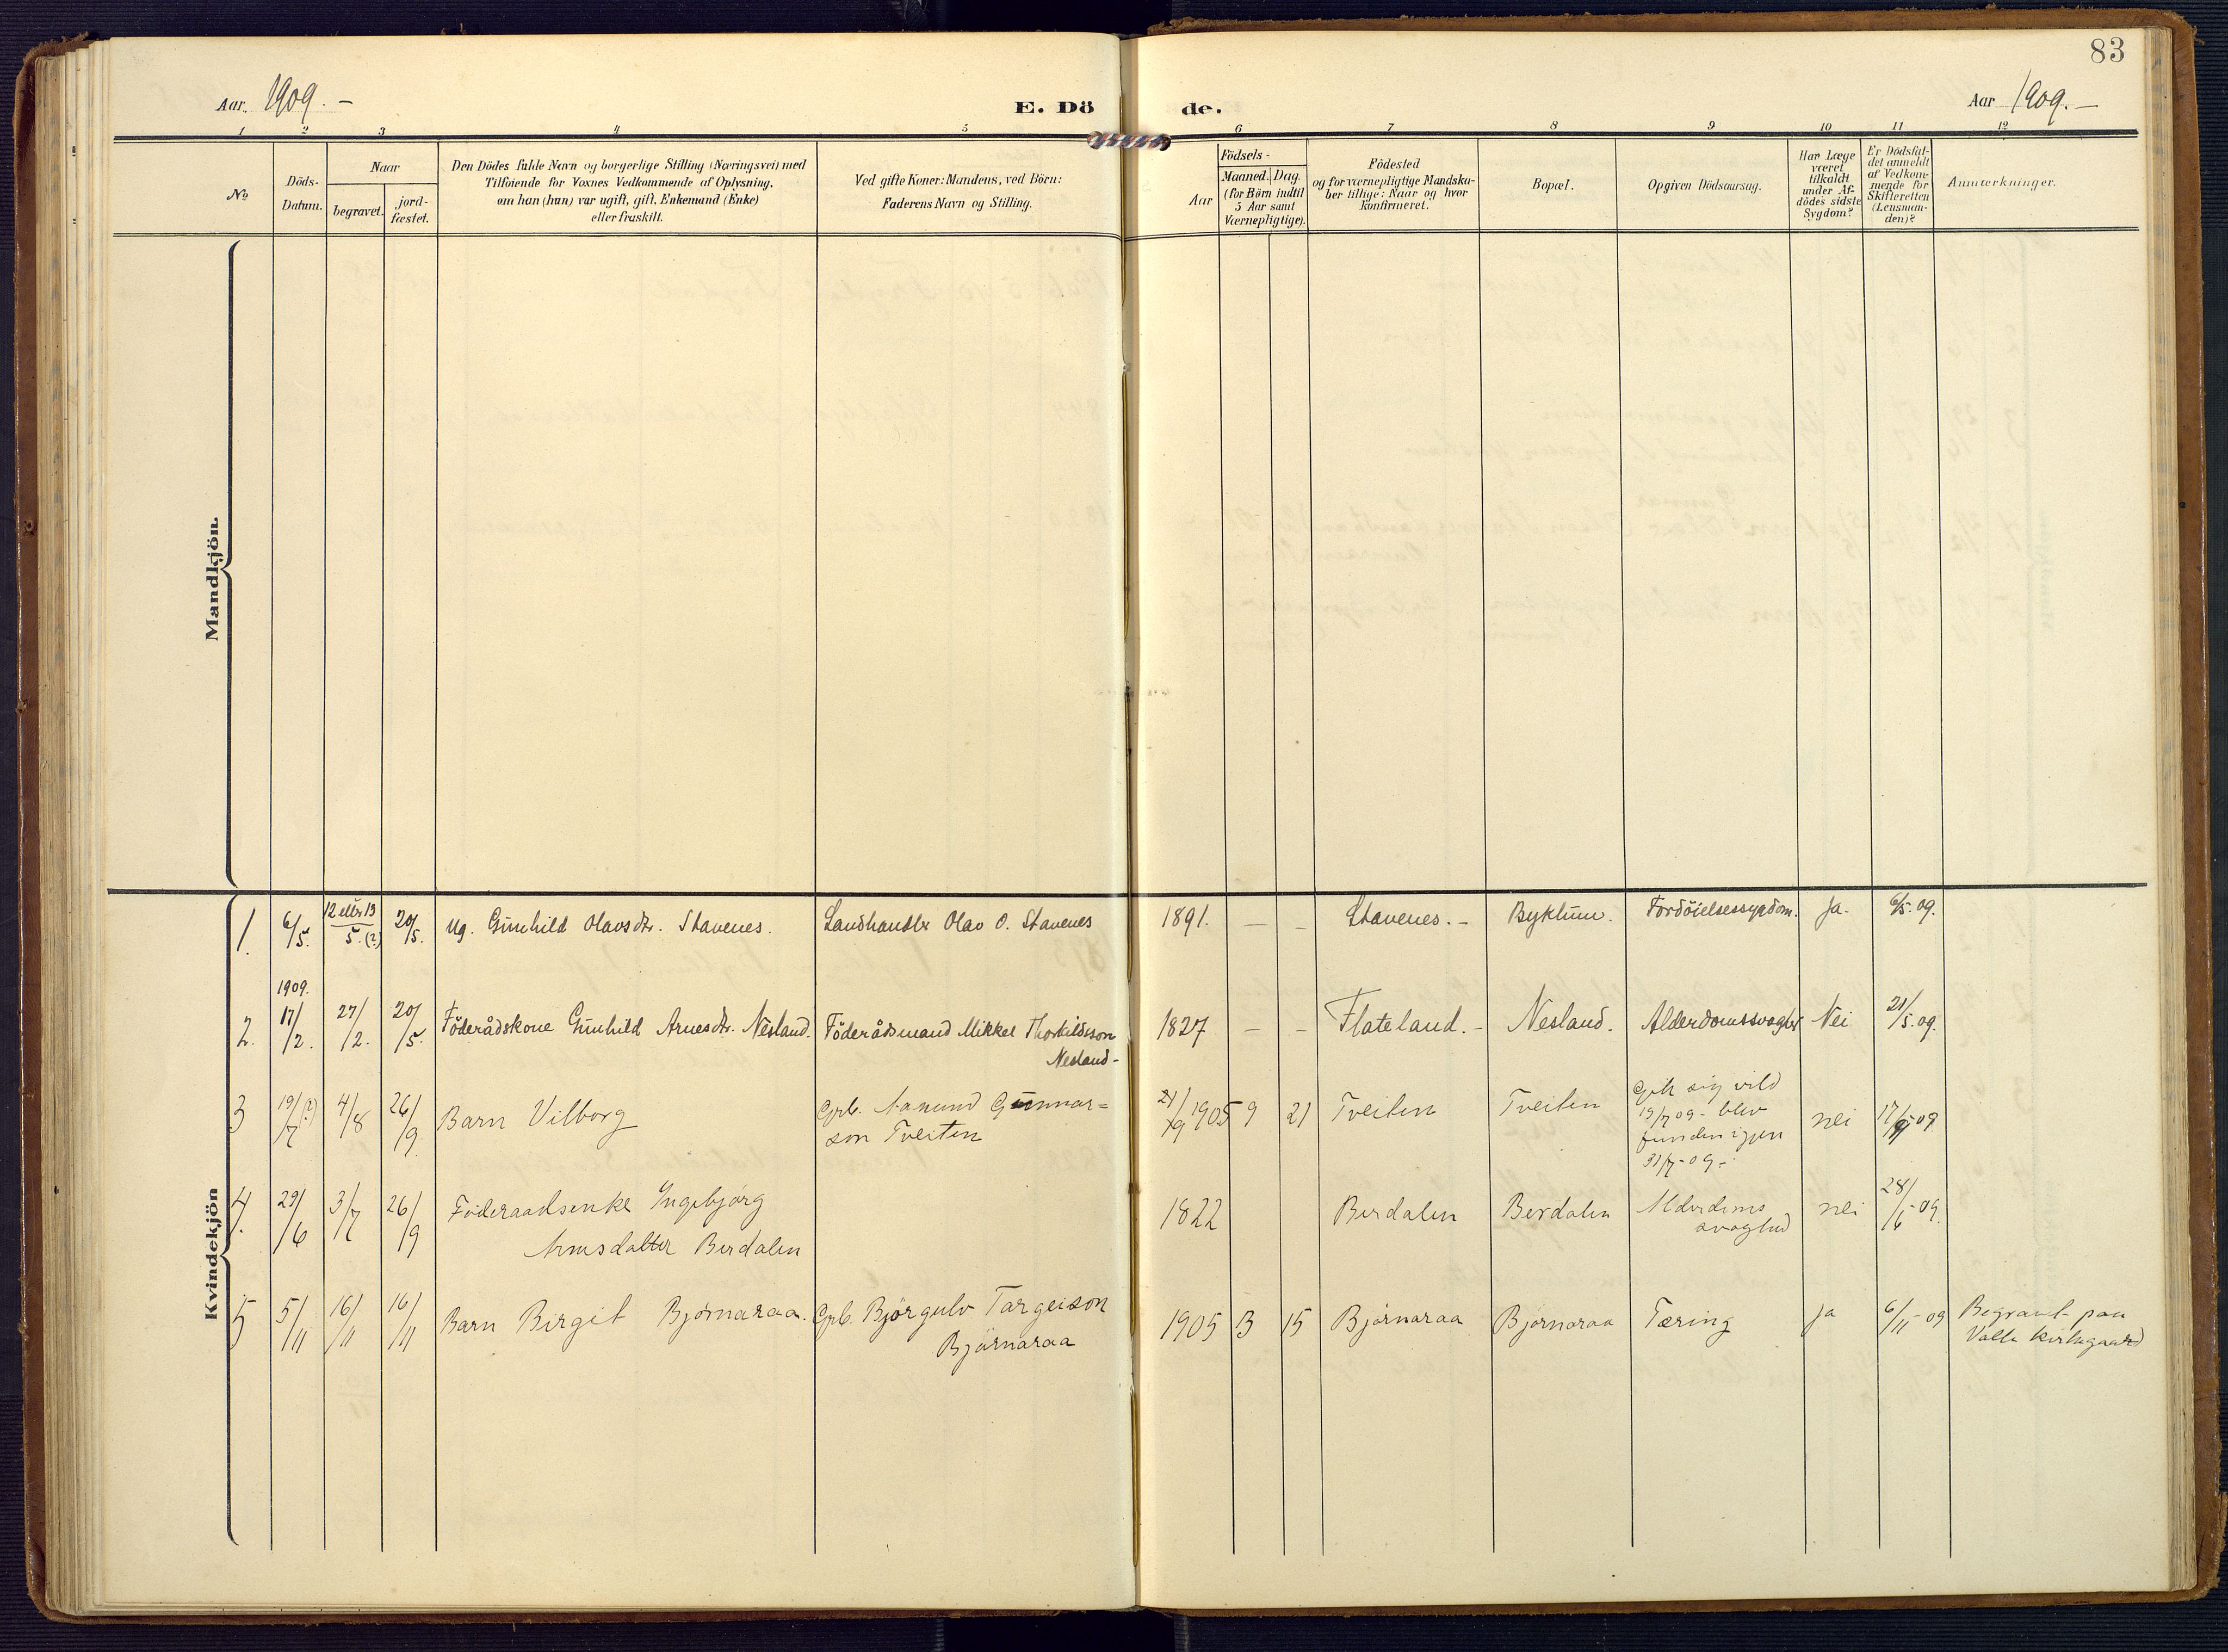 83
Aar 1909. —
E. Dö
de.
Aar 1909. —
1 2 3 4 5 6 7 8 9 10 11 12
No
Döds-
Datum.
Naar
begravet.
jord-
fæstet.
Den Dödes fulde Navn og borgerlige Stilling (Næringsvei) med
Tilföiende for Voxnes Vedkommende af Oplysning,
om han (hun) var ugift, gift, Enkemand (Enke)
eller fraskilt.
Ved gifte Koner: Mandens, ved Börn:
Faderens Navn og Stilling.
Födsels-
Aar
Maaned. Dag.
(for Börn indtil
5 Aar samt
Værnepligtige).
Födested
og for værnepligtige Mandska-
ber tillige: Naar og hvor
konfirmeret.
Bopæl.
Opgiven Dödsaarsag.
Har Læge
været
tilkaldt
under Af-
dödes sidste
Sygdom?
Er Dödsfal-
det anmeldt
af Vedkom-
mende for
Skifteretten
(Lensman-
den)?
Anmærkninger.
Mandkjön.
Kvindekjön
1. 6/5. 12 eller 13/5. (?) 20/5. Ug. Gunhild Olavsdtr. Stavenes. Landhandler Olav O. Stavenes 1891. — — Stavenes. - Bykum. Fordöielsessygdom. Ja. 6/5. 09.
1909.
2. 17/2. 27/2. 20/5. Föderådskone Gunhild Arnesdtr. Nesland. Föderådsmand Mikkel Thorkildsson 1827 — — Flateland. - Nesland. Alderdomssvaghet Nei 21/5. 09.
Nesland -
3 19/7 (?) 4/8 26/9 Barn Vilborg Grb. Aanund Gunnar=
son Tveiten 21/9 1905 9 21 Tveiten Tveiten Gik sig vild
19/7 09 - blev
funden igjen
31/7 - 09 - nei 17/9 09
4. 29/6 3/7 26/9 Föderaadsenke Ingebjörg
Arnesdatter Berdalen 1822 Berdalen Berdalen Alderdoms
svaghed nei 28/6 - 09.
5 5/11 16/11 16/11 Barn Birgit Bjørnaraa. Grb. Bjørgulv Targeison
Bjørnaraa 1905 3 15 Bjørnaraa Bjørnaraa Tæring ja 6/11 - 09 Begravet paa
Valle kirkegaard